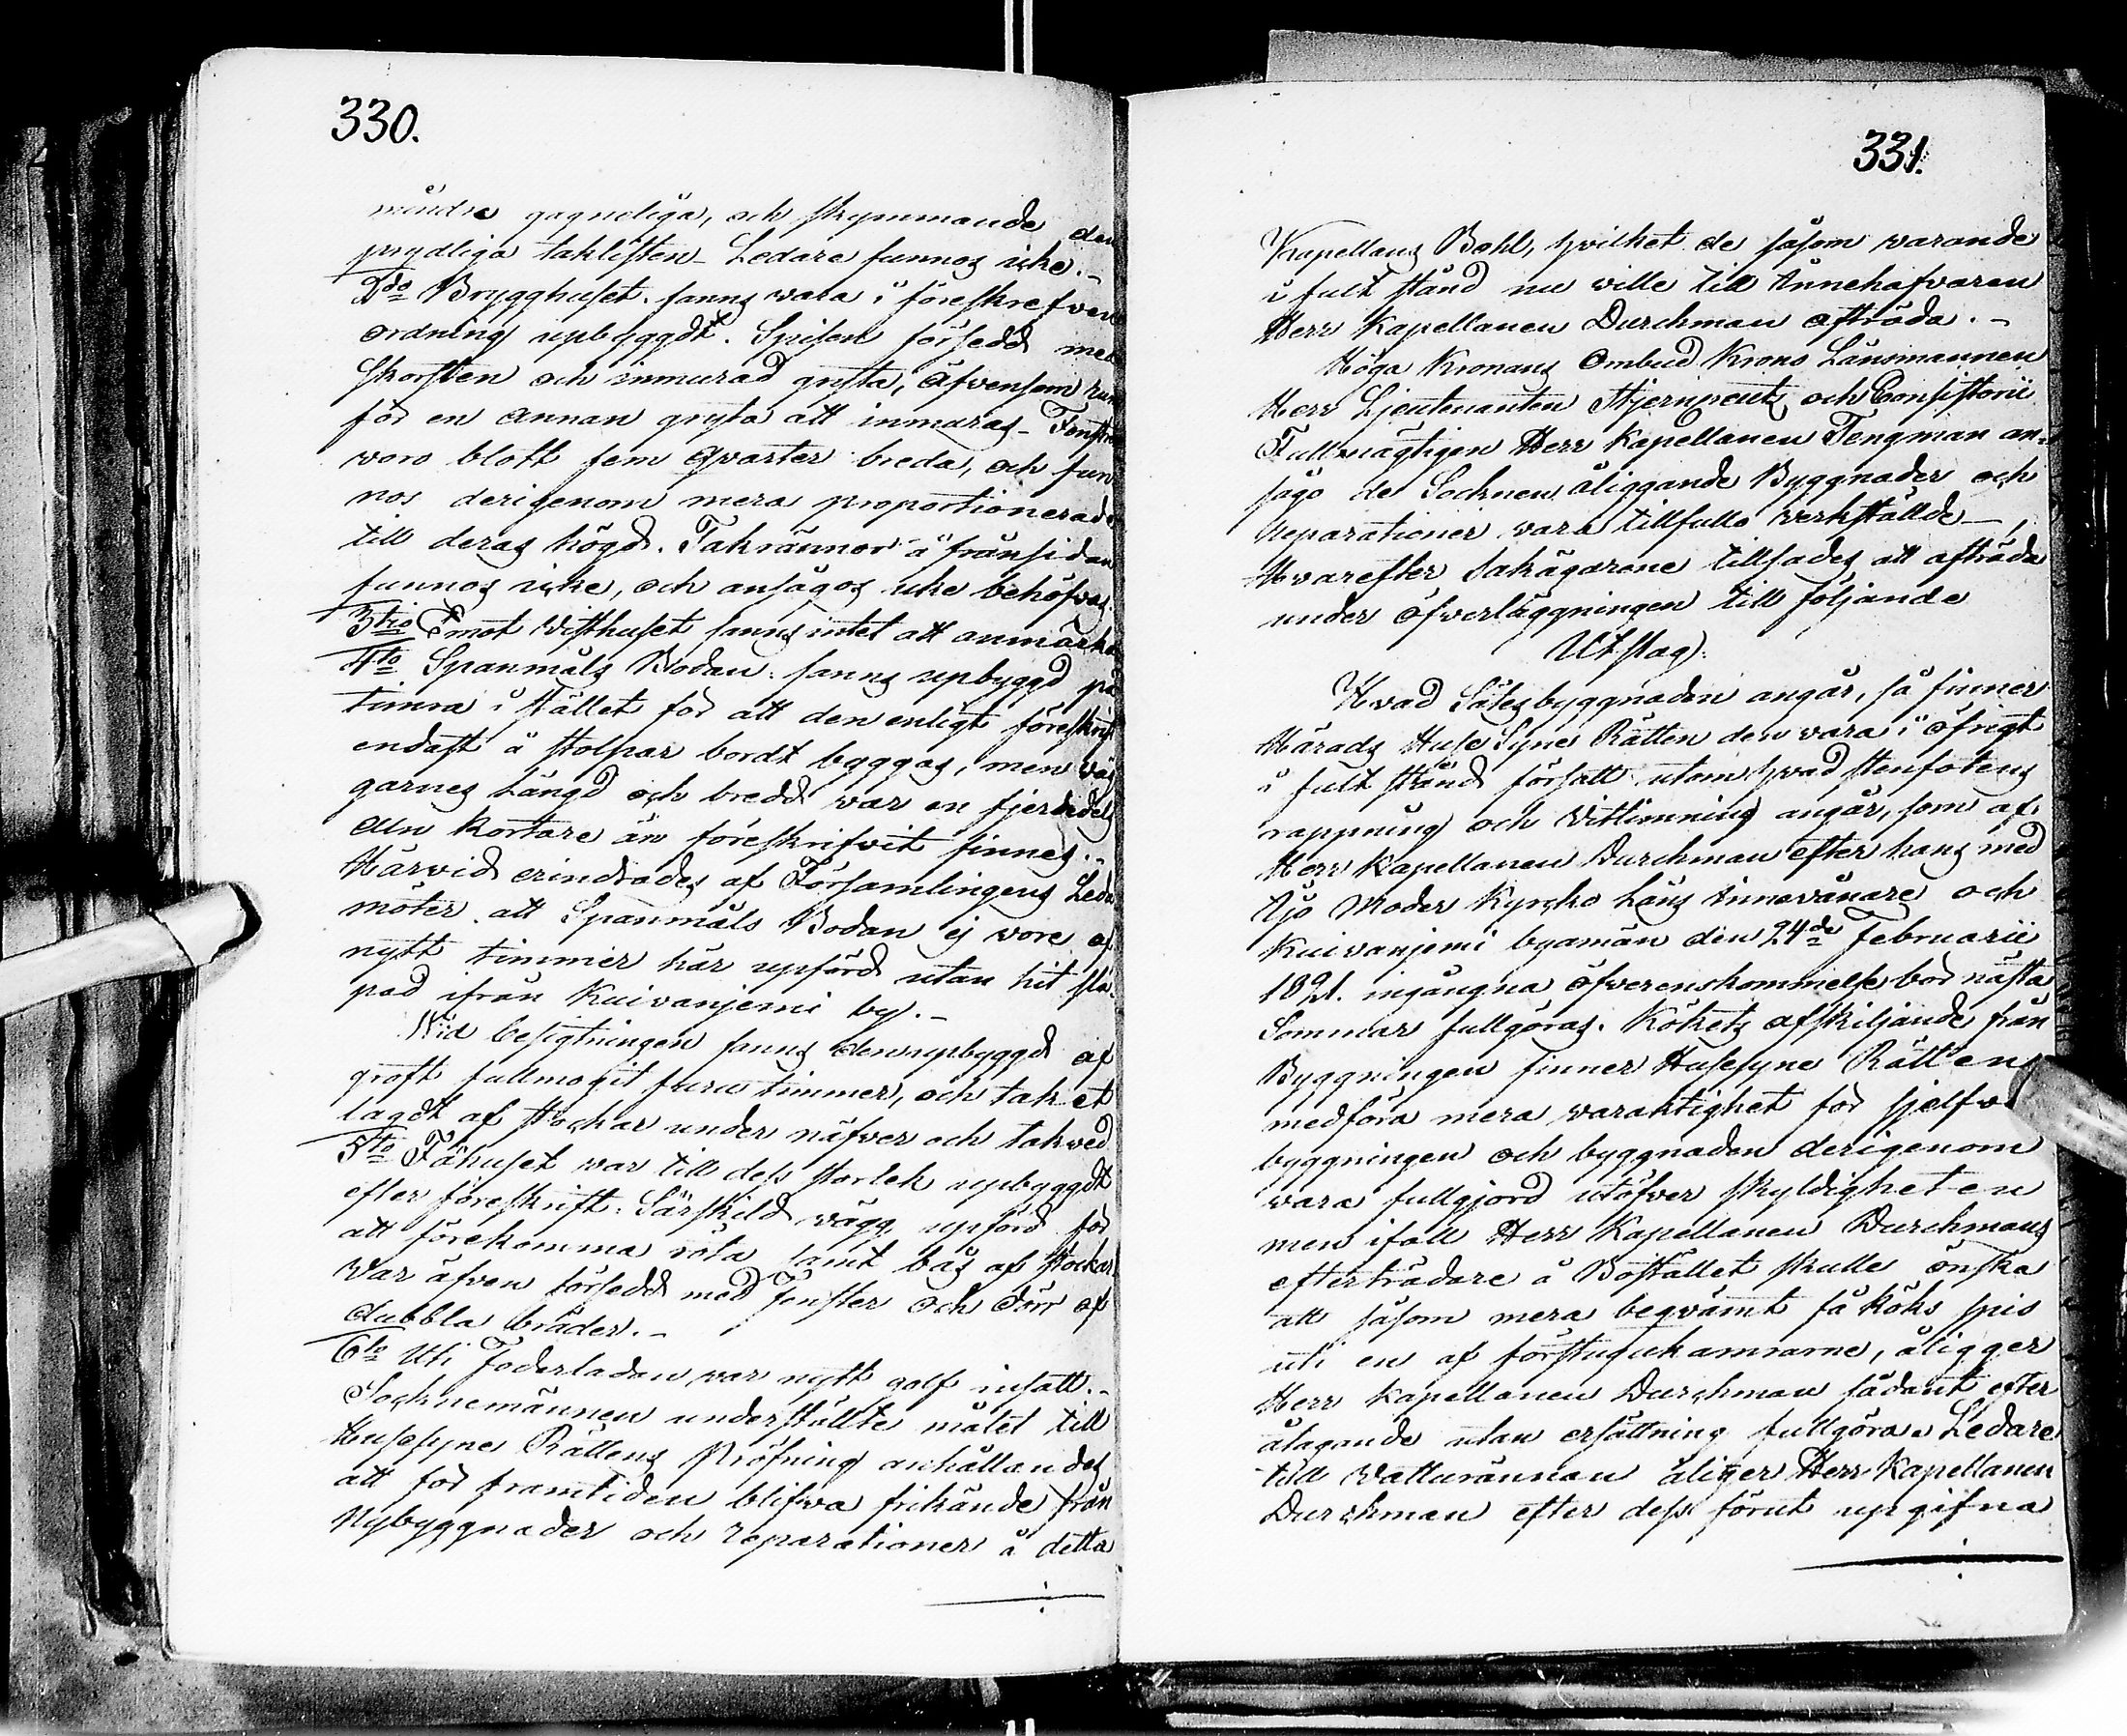 330.
mindre gagneliga, och skymmande den
prydliga taklisten. Ledare funnos icke.-
2do Brygghuset fanns vara i föreskrefven
ordning upbyggdt. Spisen försedd med
skorsten och inmurad gryta, äfvensom rum
för en annan gryta att inmuras. Fenstren
voro blott fem qvarter breda, och fun
nos derigenom mera proportionerade
till deras högd. Takrännor å frånsidan
funnos icke, och ansågos icke behöfvas.
3tio Emot Visthuset fanns intet att anmärka
4to Spanmåls Bodan fanns upbyggd på
timra i stället för att den enligt föreskrift
endast å stolpar bordt byggas, men väg
garnes Längd och bredd var en fjerdedels
aln kortare än föreskrifvit finnes.-
Härvid erindrades af Församlingens Leda
möter att Spanmåls Bodan ej vore af
nytt timmer här upförd utan hit slä-
pad ifrån Kuivanjemi by.-
Vid besigtningen fanns den upbyggd af
groft fullmogit furu timmer, och taket
lagdt af stockar under näfver och takved.
5to Fähuset var till dess storlek upbyggdt
efter föreskrift. Särskild vägg upförd för
att förekomma röta samt bås af stockar
var äfven försedd med Fenster och dörr af
dubbla bräder.-
6to Uti Foderladan var nytt golf insatt.-
Socknemännen underställte målet till
Husesyne Rättens Pröfning anhållandes
att för framtiden blifva frikände från
Nybyggnader och reparationer å detta
331.
Kapellans Bohl, hvilket de såsom varande
i fult stånd nu ville till Innehafvaren
Herr Kapellanen Durchman afträda.-
Höga Kronans Ombud Krono Länsmannen
Herr Lieutenanten Stjerncreutz och Consistorii
Fullmägtigen Herr Kapellanen Tengman an-
sågo de Socknen åliggande Byggnader och
reparationer vara tillfullo verkställde -,
Hvarefter Sakägarene tillsades att afträda
under öfverläggningen till följande
Utslag:
Hvad Sätesbyggnaden angår, så finner
Härads Huse Syne Rätten den vara i öfrigt
i fult stånd försatt utom hvad stenfotens
rappning och Vitlimning angår, som af
Herr Kapellanen Durchman efter hans med
Ijo Moder Kyrcko Läns Innevånare och
Kuivanjemi byamän den 24de Februarii
1821. ingångna öfverenskommelse bör nästa
Sommar fullgöras. Kökets afskiljande från
Byggningen finner Husesyne Rätten
medföra mera varaktighet för sjelfva
byggningen och byggnaden derigenom
vara fullgjord utöfver skyldigheten
men ifall Herr Kapellanen Durchmans
efterträdare å Bostället skulle önska
att såsom mera beqvämt få köks spis
uti en af förstugukamrarne, åligger
Herr Kapellanen Durchman sådant efter
åtagande utan ersättning fullgöra. Ledare
till Vatturännan åliger Herr Kapellanen
Durchman efter dess förut upgifna